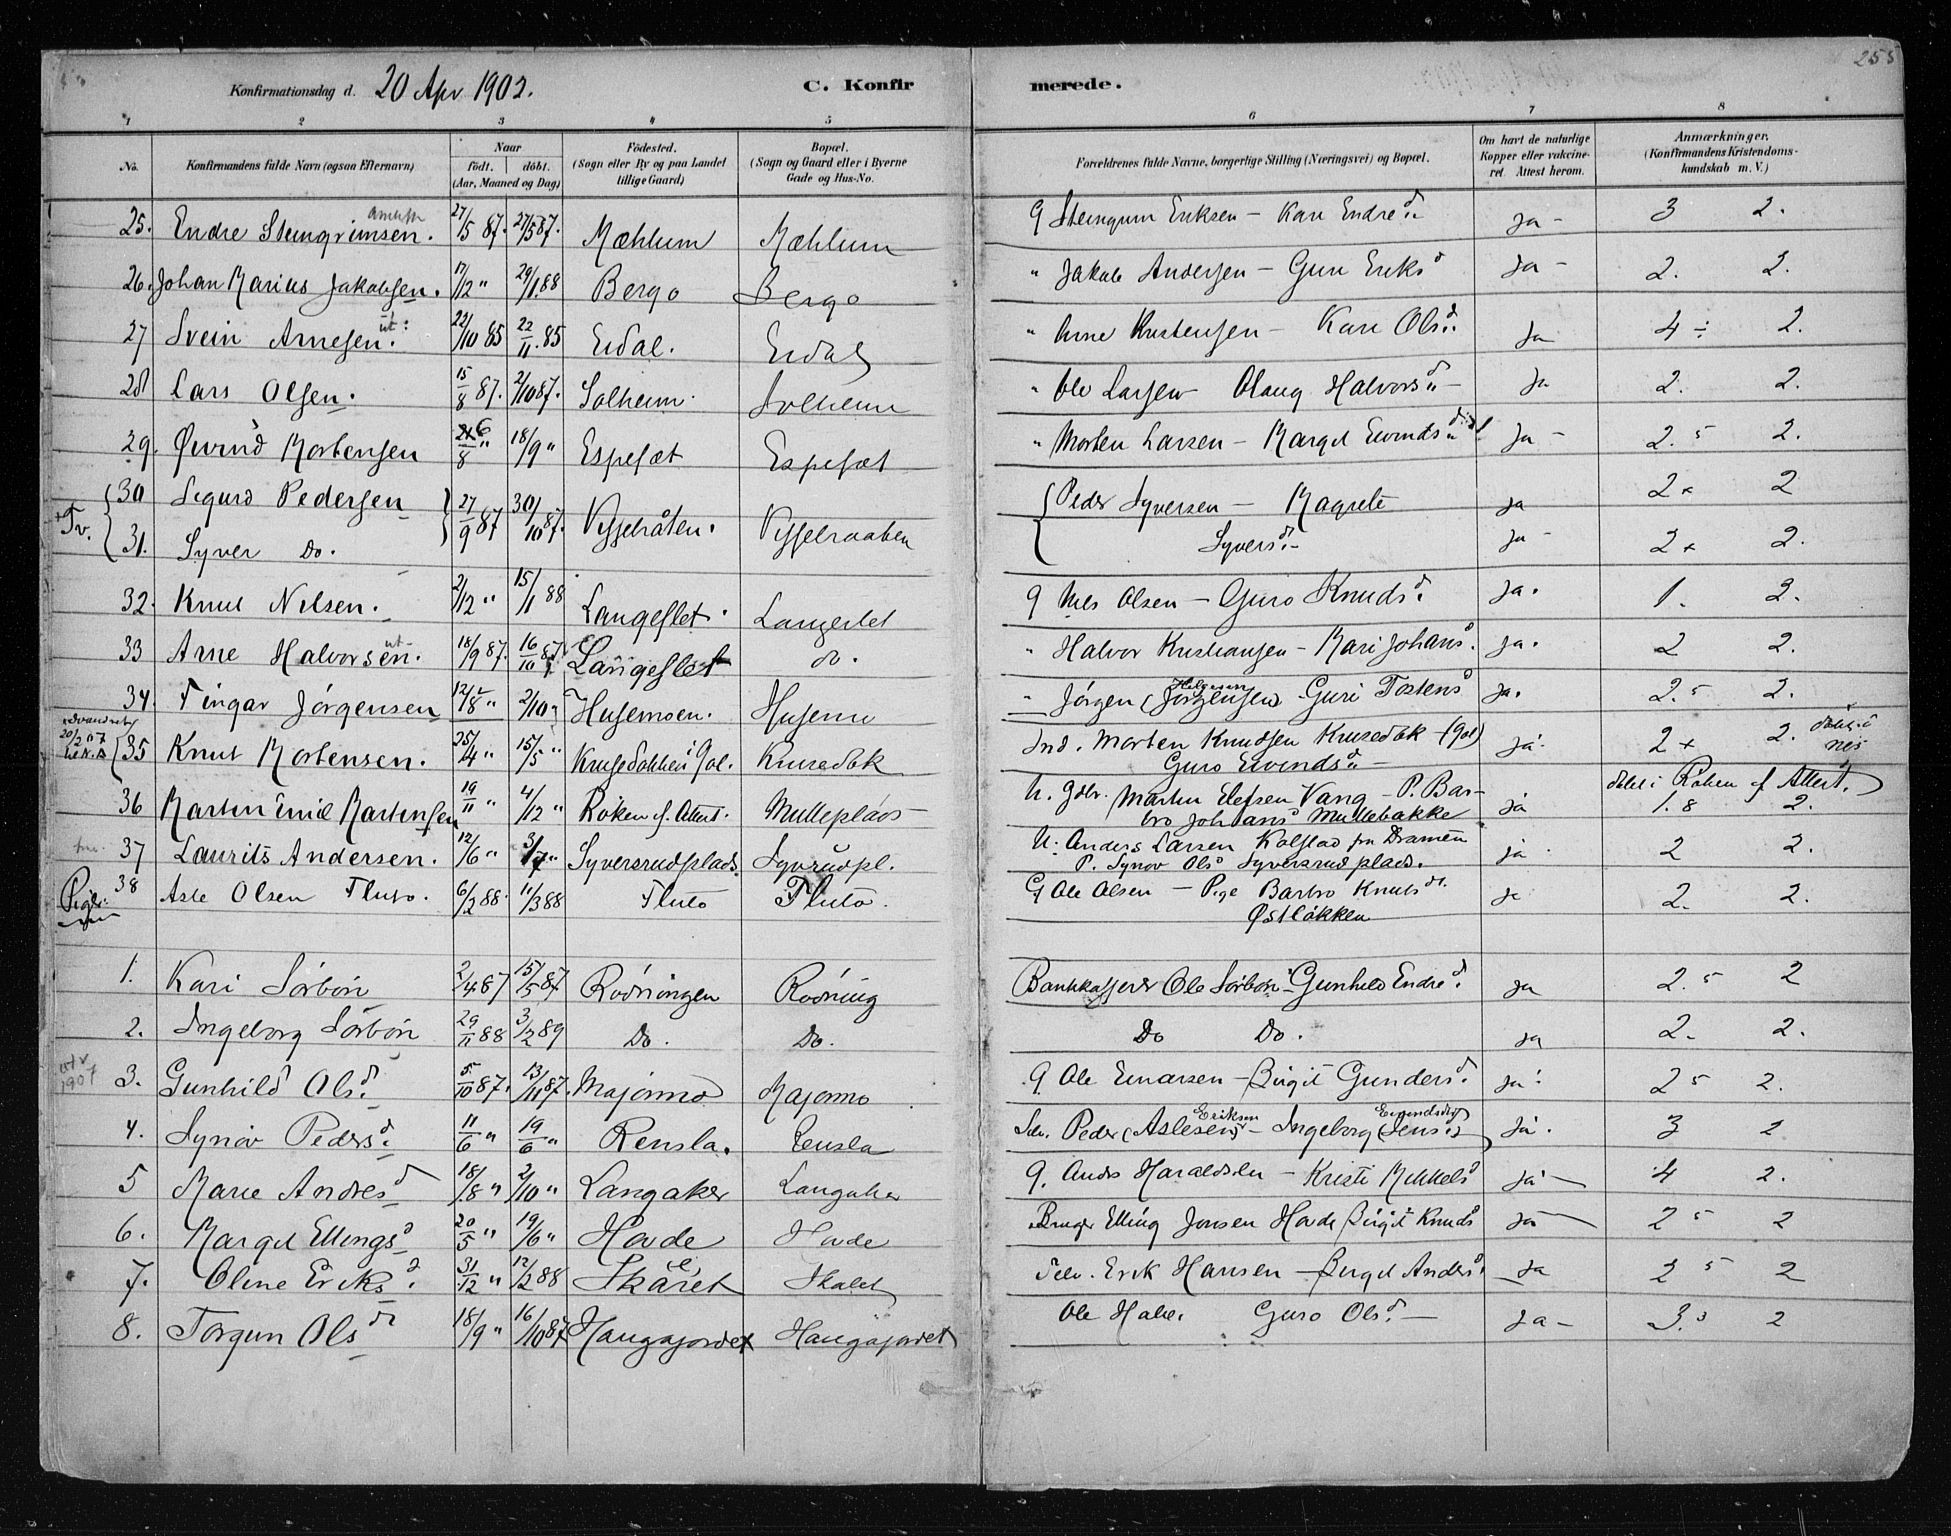 255
Konfirmationsdag d. 20 Apr 1902. C. Konfirmerede.
1 2 3 4 5 6 7 8
No. Konfirmandens fulde Navn (ogsaa Efternavn) Naar født. døbt. (Aar, Maaned og Dag) Fødested. (Sogn eller By og paa Landet tillige Gaard) Bopæl. (Sogn og Gaard eller i Byerne Gade og Hus-No. Forældrenes fulde Navne, borgerlige Stilling (Næringsvei) og Bopæl. Om havt de naturlige Kopper eller vakcineret. Attest herom. Anmærkninger. (Konfirmandens Kristendomskundskab m. V.)
25. Endre Steingrimsen. 27/5 87. 27/5 87. Mæhlum Mæhlum G Steingrim Eriksen – Kari Endred. Ja – 3 2.
26. Johan Marius Jakobsen. 17/12 " 29/1.88 Bergo Bergo " Jakob Andersen – Guri Eriksd Ja – 2. 2.
27 Svein Arnesen. ut: 22/10 85 22/11.85 Eidal. Eidal " Arne Kristensen – Kari Olsd. Ja 4 ÷ 2.
28 Lars Olsen. 15/8 87. 2/10 87. Solheim. Solheim " Ole Larsen Olaug Halvorsd – Ja 2. 2.
29. Øivind Mortensen 26/8 " 18/9 " Espeset Espeset " Morten Larsen – Margit Eivindsd Ja – 2.5 2.
Tv. 30 Sigurd Pedersen 27/9 87 30/10 87. Visselråten. Visselraaten Peder Syversen – Magrete Ja 2 x 2
31. Syver Do. Syversd. – Ja – 2 x 2.
32. Knut Nilsen. 2/12 " 15/1 88 Langeslet. Langeslet G Nils Olsen – Guro Knudsd. Ja. 1. 2.
33 Arne Halvorsen. ut. 18/9 87. 16/10 87. Langeslet do. " Halvor Kristiansen – Mari Johansd. Ja. 2 2.
34. Fingar Jørgensen 12/8 " 2/10 " Husemoen. Husemo " Jørgen (Jörgensen) Helgesen Guri Tostensd Ja. 2.5 2.
35 Knut Mortensen. 25/4 " 15/5 " Krusedokken i Gol. Krusedok Ind. Morten Knudsen Krusedok (Gol) Ja. 2 x 2. døbt i Nes
Guro Eivindsd –
36 Martin Emil Martinsen 19/11 " 4/12 " Röken f. Attest. Mulleplads U. Gdbr. Martin Elefsen Vang – P. Barbro Johansd Mullebakke Ja døbt i Röken f. Attest. 1.8 2.
37 Laurits Andersen. 12/6 " 3/7 " Syversrudplads. Syvrudpl. U. Anders Larsen Kolstad fra Dramen Ja 2 2.
P. Synöv Olsd Syversrudplads.
38 Asle Olsen Fluto. 6/2 88. 11/3 88 Fluto Fluto. G Ole Olsen – Pige Barbro Knutsd. Ja 2. 2.
Østlökken
Piger
1. Kari Sörbön 2/4 87 15/5 87 Rodningen Rodning Bankkasserer Ole Sörbön – Gunhild Endred. Ja 2.5 2
2. Ingeborg Sörbön 29/11 88 3/2 89 Do. Do. Do Do. Ja 2. 2.
1907 3. Gunhild Olsd. 5/10 87. 13/11 87. Majormo Majormo G Ole Einarsen – Birgit Gundersd. Ja. 2 5 2.
4. Synöv Pedersd. 11/6 " 19/6 " Rensla. Rensla Selv. Peder (Aslesen) Eriksen – Ingeborg (Jens.) Eivindsdtr Ja. 3 2
5 Marie Andresd 18/8 " 2/10 " Langaker Langaker G. Andr. Haraldsen – Kristi Mikkelsd Ja – 4 2.
6. Margit Ellingsd 20/5 " 19/6 " Hovde Hovde Bruger Elling Jonsen Hovde Birgit Knudsd Ja – 2 5 2
7. Oline Eriksd. 31/12 " 12/2 88 Skåret Skalet Selv. Erik Hansen – Birgit Andersd. Ja 2 5 2
8. Torgun Olsd 18/9 " 16/10 87 Haugajordet Haugajordet Ole Halv. Guro Olsd. – Ja – 3.3 2